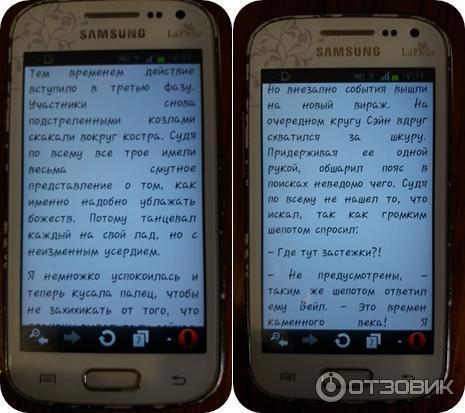 SAMSUNG
LaFleur
14:33
Тем временем действие
вступило в третью фазу.
Участники снова
подстреленными козлами
скакали вокруг костра. Судя
по всему все трое имели
весьма смутное
представление о том, как
именно надобно ублажать
божеств. Потому танцевал
каждый на свой лад, но с
неизменным усердием.
Я немножко успокоилась и
теперь кусала палец, чтобы
не захихикать от того, что
7
SAMSUNG
LaFleur
14:33
Но внезапно события вышли
на новый вираж. На
очередном кругу Сэйн вдруг
схватился за шкуру.
Придерживая ее одной
рукой, обшарил пояс в
поисках неведомо чего. Судя
по всему не нашел то, что
искал, так как громким
шепотом спросил:
- Где тут застежки?!
- Не предусмотрены, -
таким же шепотом ответил
ему Вейл. - Это времен
каменного века! Я
7
ОТЗОВИК